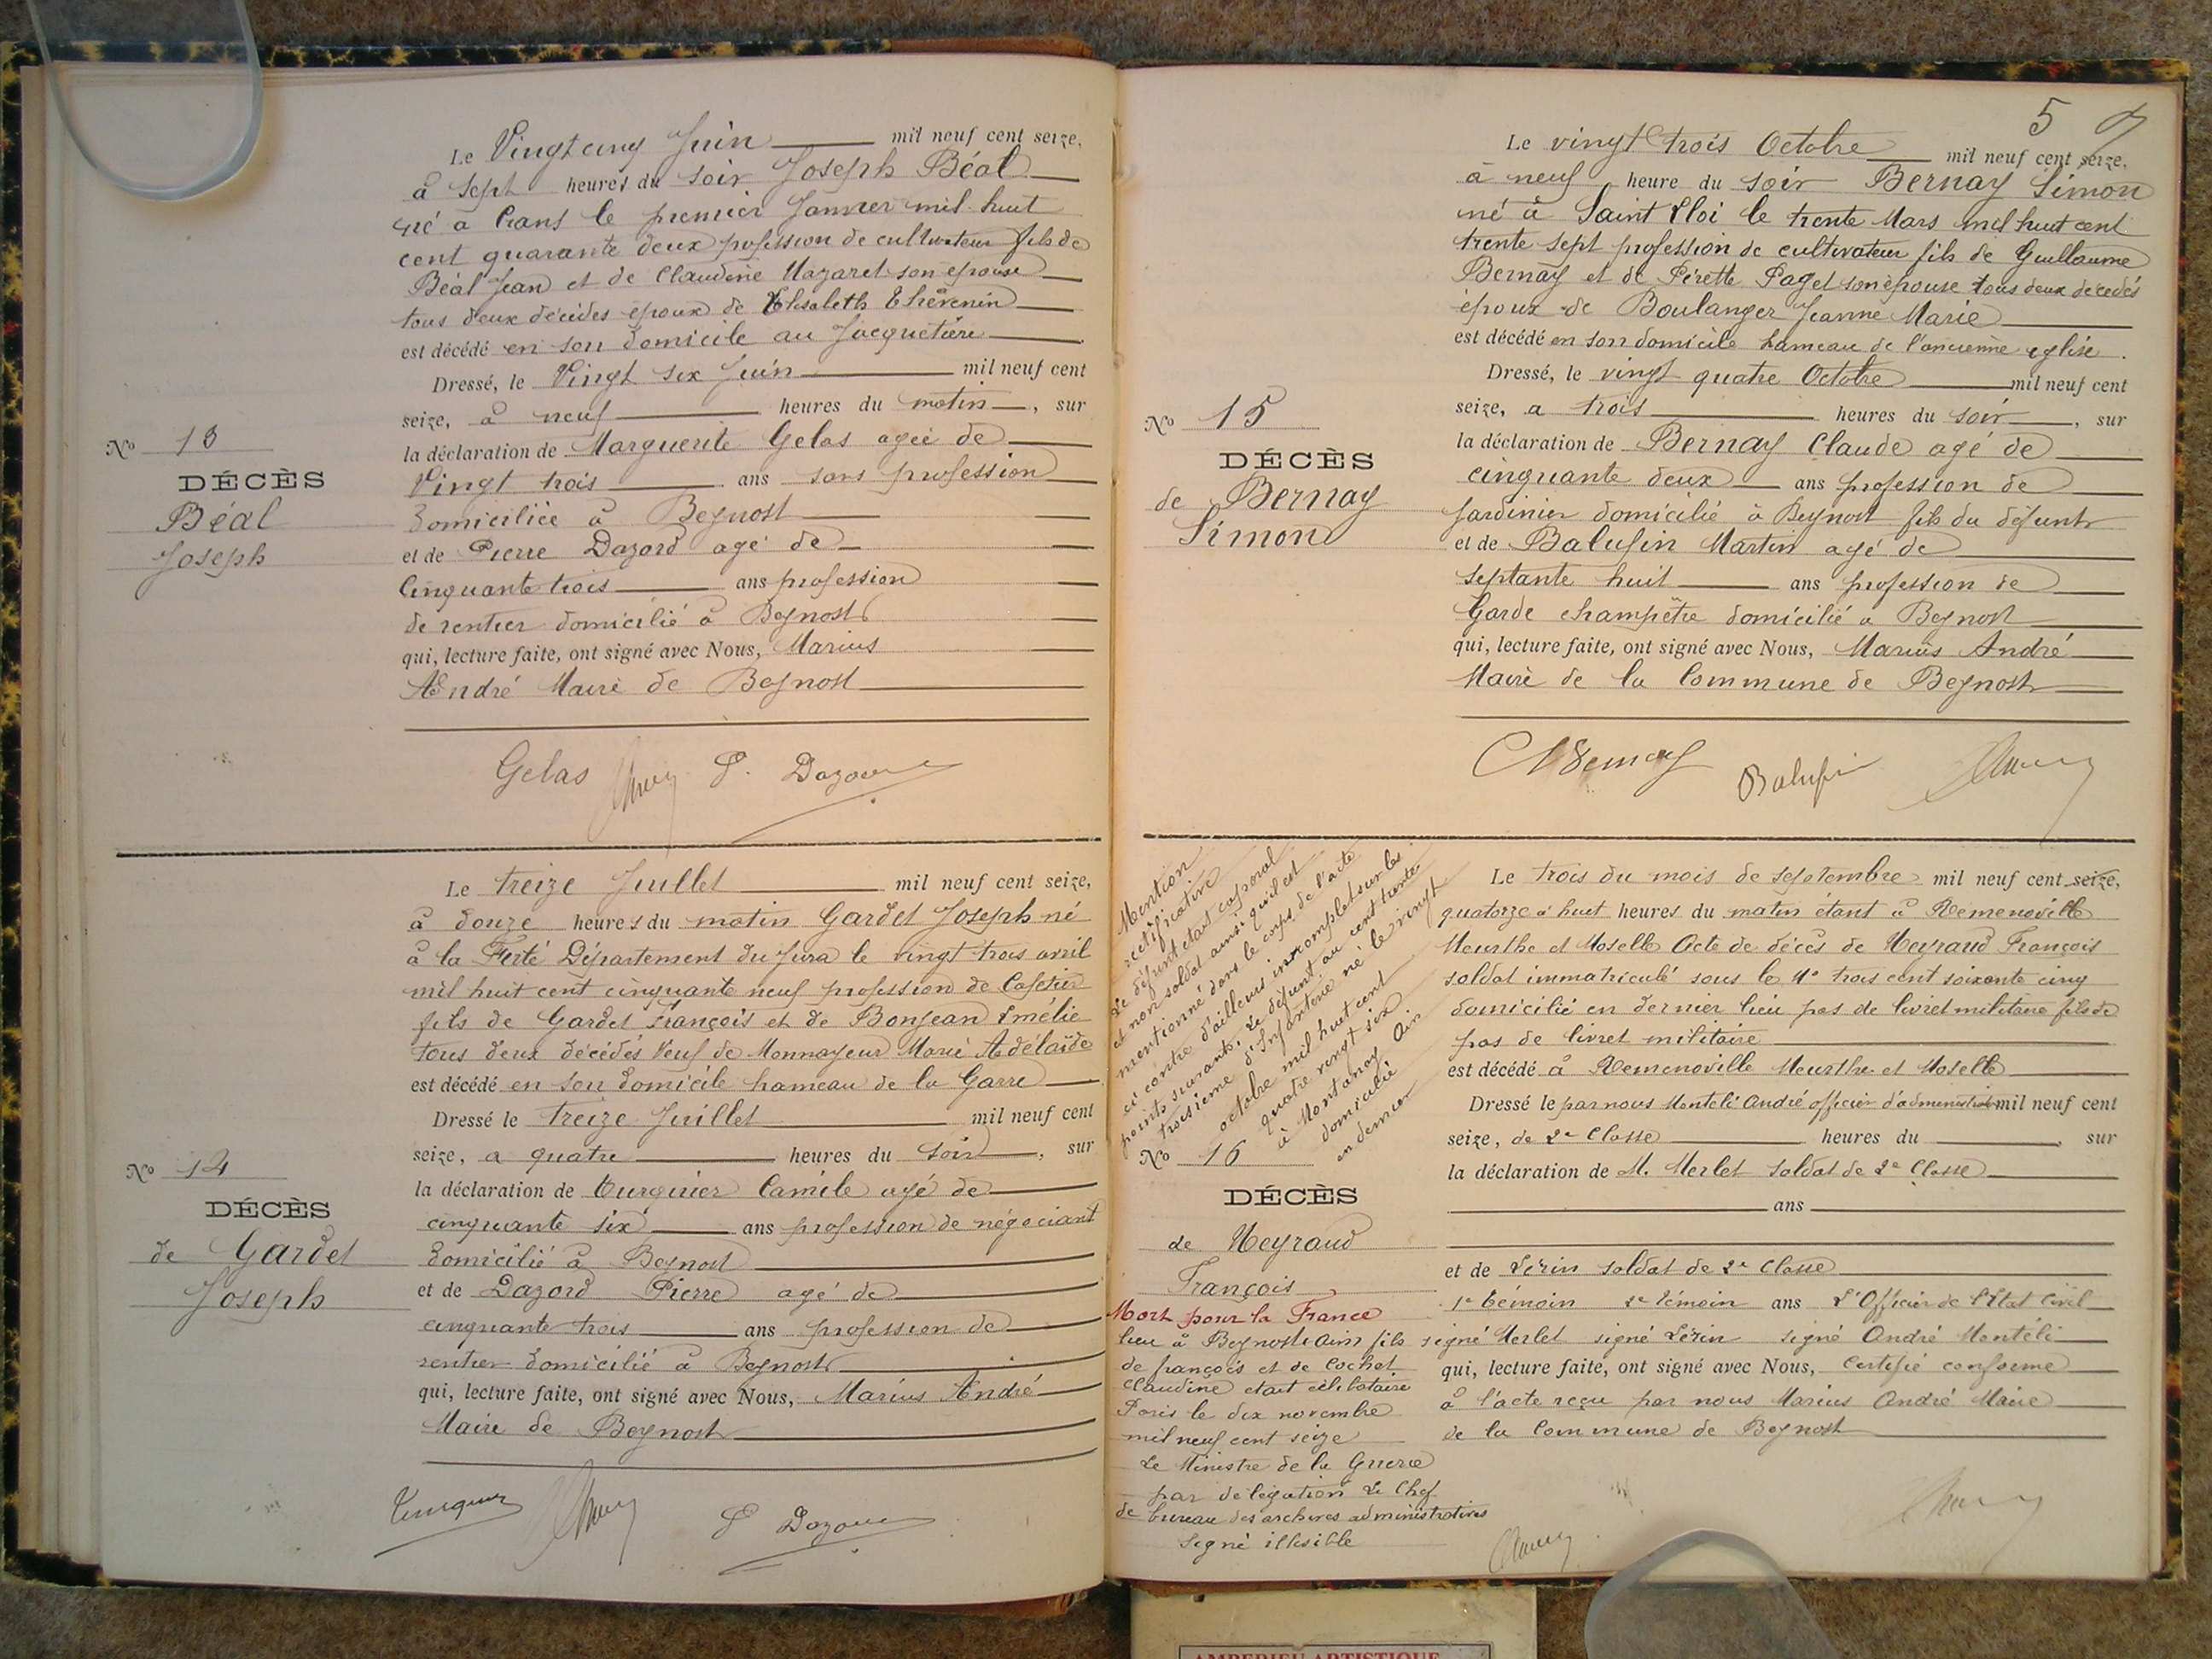 Le Vingt cinq Juin mil neuf cent seize,
à sept heures du soir Joseph Béal
né à Crans le premier Janvier mil huit
cent quarante deux profession de cultivateur fils de
Béal Jean et de Claudine Nazaret son épouse
tous deux décédés époux de Elisabeth Thévenin
est décédé en son domicile au Jacquetière
Dressé, le Vingt six Juin mil neuf cent
seize, à neuf heures du matin, sur
la déclaration de Marguerite Gelas agée de
Vingt trois ans sans profession
domiciliée à Beynost
et de Pierre Dazord agé de
Cinquante trois ans profession
de rentier domicilié à Beynost
qui, lecture faite, ont signé avec Nous, Marius
André Maire de Beynost
No 13
DÉCÈS
Béal
Joseph
Gelas P. Dazord
Le treize Juillet mil neuf cent seize,
à douze heures du matin Gardet Joseph né
à la Ferté Département du Jura le vingt trois avril
mil huit cent cinquante neuf profession de Cafetier
fils de Gardet François et de Bonjean Emélie
tous deux décédés Veuf de Monnayeur Marie Adélaïde
est décédé en son domicile hameau de la Garre
Dressé le Treize Juillet mil neuf cent
seize, a quatre heures du Soir, sur
la déclaration de Turquier Camile agé de
cinquante six ans profession de négociant
domicilié à Beynost
et de Dazord Pierre agé de
cinquante trois ans profession de
rentier domicilié à Beynost
qui, lecture faite, ont signé avec Nous, Marius André
Maire de Beynost
No 14
DÉCÈS
de Gardet
Joseph
P Dazord
5
Le vingt trois Octobre mil neuf cent seize,
à neuf heure du soir Bernay Simon
né à Saint Eloi le trente Mars mil huit cent
trente sept profession de cultivateur fils de Guillaume
Bernay et de Pérette Paget son épouse tous deux décédés
époux de Boulanger Jeanne Marie
est décédé en son domicile hameau de l'ancienne eglise.
Dressé, le vingt quatre Octobre mil neuf cent
seize, a trois heures du soir, sur
la déclaration de Bernay Claude agé de
cinquante deux ans profession de
Jardinier domicilié à Beynost fils du défunt
et de Balufin Martin agé de
septante huit ans profession de
Garde champêtre domicilié a Beynost
qui, lecture faite, ont signé avec Nous, Marius André
Maire de la Commune de Beynost
No 15
DÉCÈS
de Bernay
Simon
Balufin
Mention
rectificative
Le défunt était caporal
et non soldat ainsi qu'il est
mentionné dans le corps de l'acte
ci contre d'ailleurs incomplet sur les
points suivants: Le défunt au cent trente
troisième d'Infanterie né le vingt
octobre mil huit cent
quatre vingt six
à Montanay Ain
domicilié
en dernier
No 16
DÉCÈS
de Neyraud
François
Mort pour la France
lieu à Beynost Ain fils
de françois et de Cochet
Claudine était célibataire
Paris le dix novembre
mil neuf cent seize
Le Ministre de la Guerre
par délégation Le Chef
de bureau des archives administratives
Signé illisible
Le trois du mois de septembre mil neuf cent seize,
quatorze à huit heures du matin étant à Remenoville
Meurthe et Moselle Acte de décès de Neyraud François
soldat immatriculé sous le No trois cent soixante cinq
domicilié en dernier lieu pas de livret militaire fils de
pas de livret militaire
est décédé à Remenoville Meurthe et Moselle
Dressé le par nous Montéli André officier d'administration mil neuf cent
seize, de 2e Classe heures du , sur
la déclaration de M. Merlet soldat de 2e Classe
ans
et de Lérin soldat de 2e Classe
1e témoin 2e témoin ans L'Officier de l'Etat Civil
signé Merlet signé Lérin signé André Montéli
qui, lecture faite, ont signé avec Nous, Certifié conforme
à l'acte reçu par nous Marius André Maire
de la Commune de Beynost
AMBERIEU ARTISTIQUE